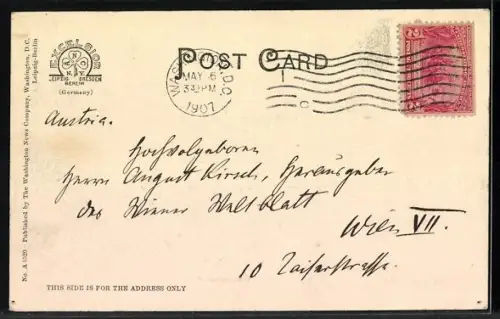 EXCELSIOR
N.Y.
LEIPZIG DRESDEN
BERLIN
(Germany)
POST CARD
WASHINGTON, D.C.
MAY 6
3 PM
1907
2
Austria.
Hochwolgeboren
Herrn August Kirsch, Herausgeber
des Wiener Weltblatt
Wien VII.
10 Zaiserstrasse.
THIS SIDE IS FOR THE ADDRESS ONLY
No. A 6520 Published by The Washington News Company, Washington, D.C.
Leipzig-Berlin